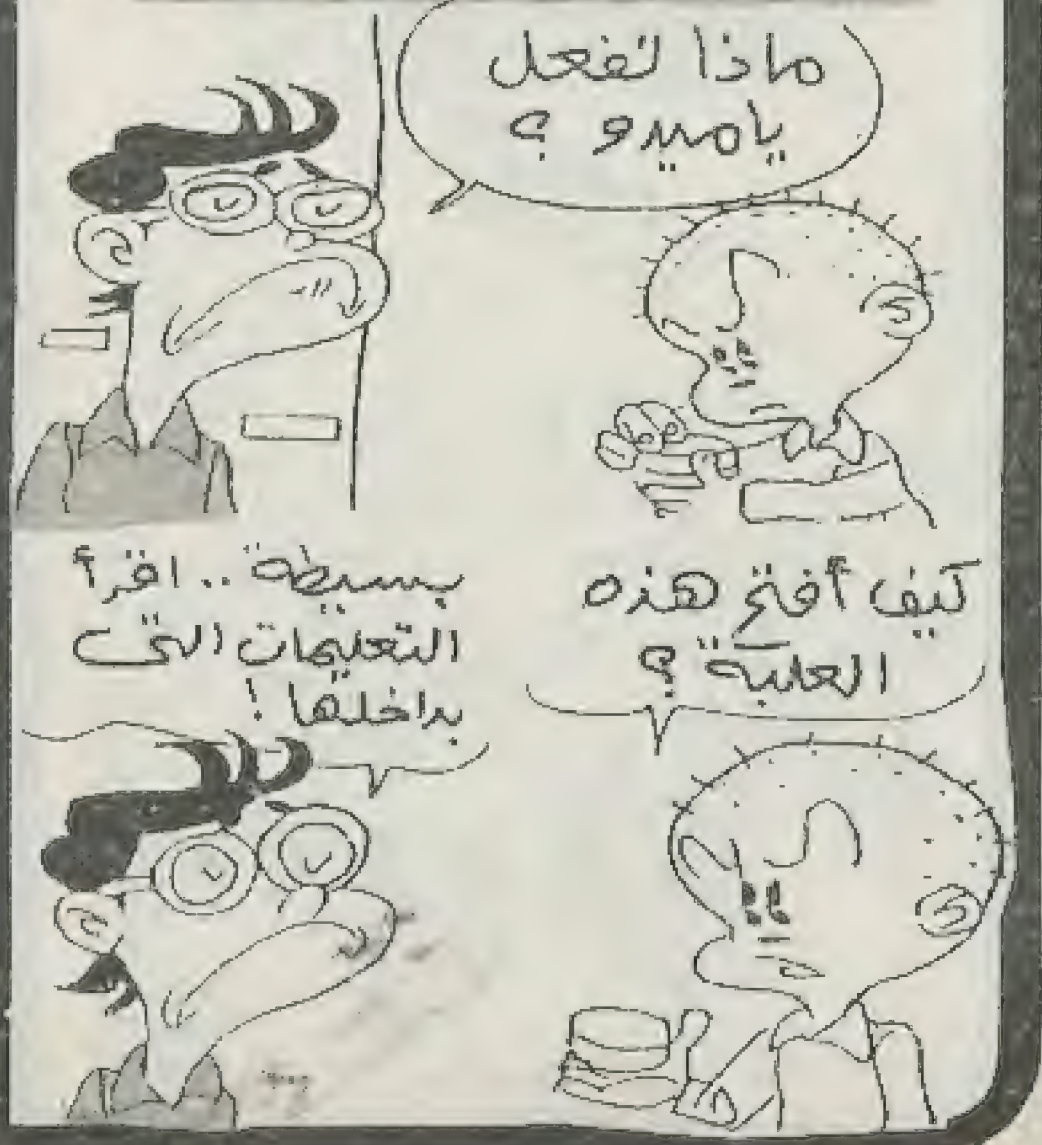 ماذا تفعل
ياميدو ؟
كيف أفتح هذه
العلبة ؟
بسيطة .. اقرأ
التعليمات التى
بداخلها !